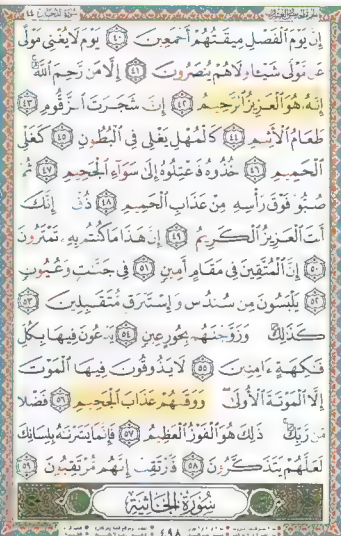 الجزء الخامس والعشرون سُورَةُ الدُّخَانِ ٤٤
إِنَّ يَوْمَ ٱلْفَصْلِ مِيقَٰتُهُمْ أَجْمَعِينَ ٤٠ يَوْمَ لَا يُغْنِى مَوْلًى
عَن مَّوْلًى شَيْـًٔا وَلَا هُمْ يُنصَرُونَ ٤١ إِلَّا مَن رَّحِمَ ٱللَّهُ
إِنَّهُۥ هُوَ ٱلْعَزِيزُ ٱلرَّحِيمُ ٤٢ إِنَّ شَجَرَتَ ٱلزَّقُّومِ ٤٣
طَعَامُ ٱلْأَثِيمِ ٤٤ كَٱلْمُهْلِ يَغْلِى فِى ٱلْبُطُونِ ٤٥ كَغَلْىِ
ٱلْحَمِيمِ ٤٦ خُذُوهُ فَٱعْتِلُوهُ إِلَىٰ سَوَآءِ ٱلْجَحِيمِ ٤٧ ثُمَّ
صُبُّوا۟ فَوْقَ رَأْسِهِۦ مِنْ عَذَابِ ٱلْحَمِيمِ ٤٨ ذُقْ إِنَّكَ
أَنتَ ٱلْعَزِيزُ ٱلْكَرِيمُ ٤٩ إِنَّ هَٰذَا مَا كُنتُم بِهِۦ تَمْتَرُونَ
٥٠ إِنَّ ٱلْمُتَّقِينَ فِى مَقَامٍ أَمِينٍ ٥١ فِى جَنَّٰتٍ وَعُيُونٍ
٥٢ يَلْبَسُونَ مِن سُندُسٍ وَإِسْتَبْرَقٍ مُّتَقَٰبِلِينَ ٥٣
كَذَٰلِكَ وَزَوَّجْنَٰهُم بِحُورٍ عِينٍ ٥٤ يَدْعُونَ فِيهَا بِكُلِّ
فَٰكِهَةٍ ءَامِنِينَ ٥٥ لَا يَذُوقُونَ فِيهَا ٱلْمَوْتَ
إِلَّا ٱلْمَوْتَةَ ٱلْأُولَىٰ وَوَقَىٰهُمْ عَذَابَ ٱلْجَحِيمِ ٥٦ فَضْلًا
مِّن رَّبِّكَ ذَٰلِكَ هُوَ ٱلْفَوْزُ ٱلْعَظِيمُ ٥٧ فَإِنَّمَا يَسَّرْنَٰهُ بِلِسَانِكَ
لَعَلَّهُمْ يَتَذَكَّرُونَ ٥٨ فَٱرْتَقِبْ إِنَّهُم مُّرْتَقِبُونَ ٥٩
سُورَةُ الجَاثِيَةِ
٤٩٨